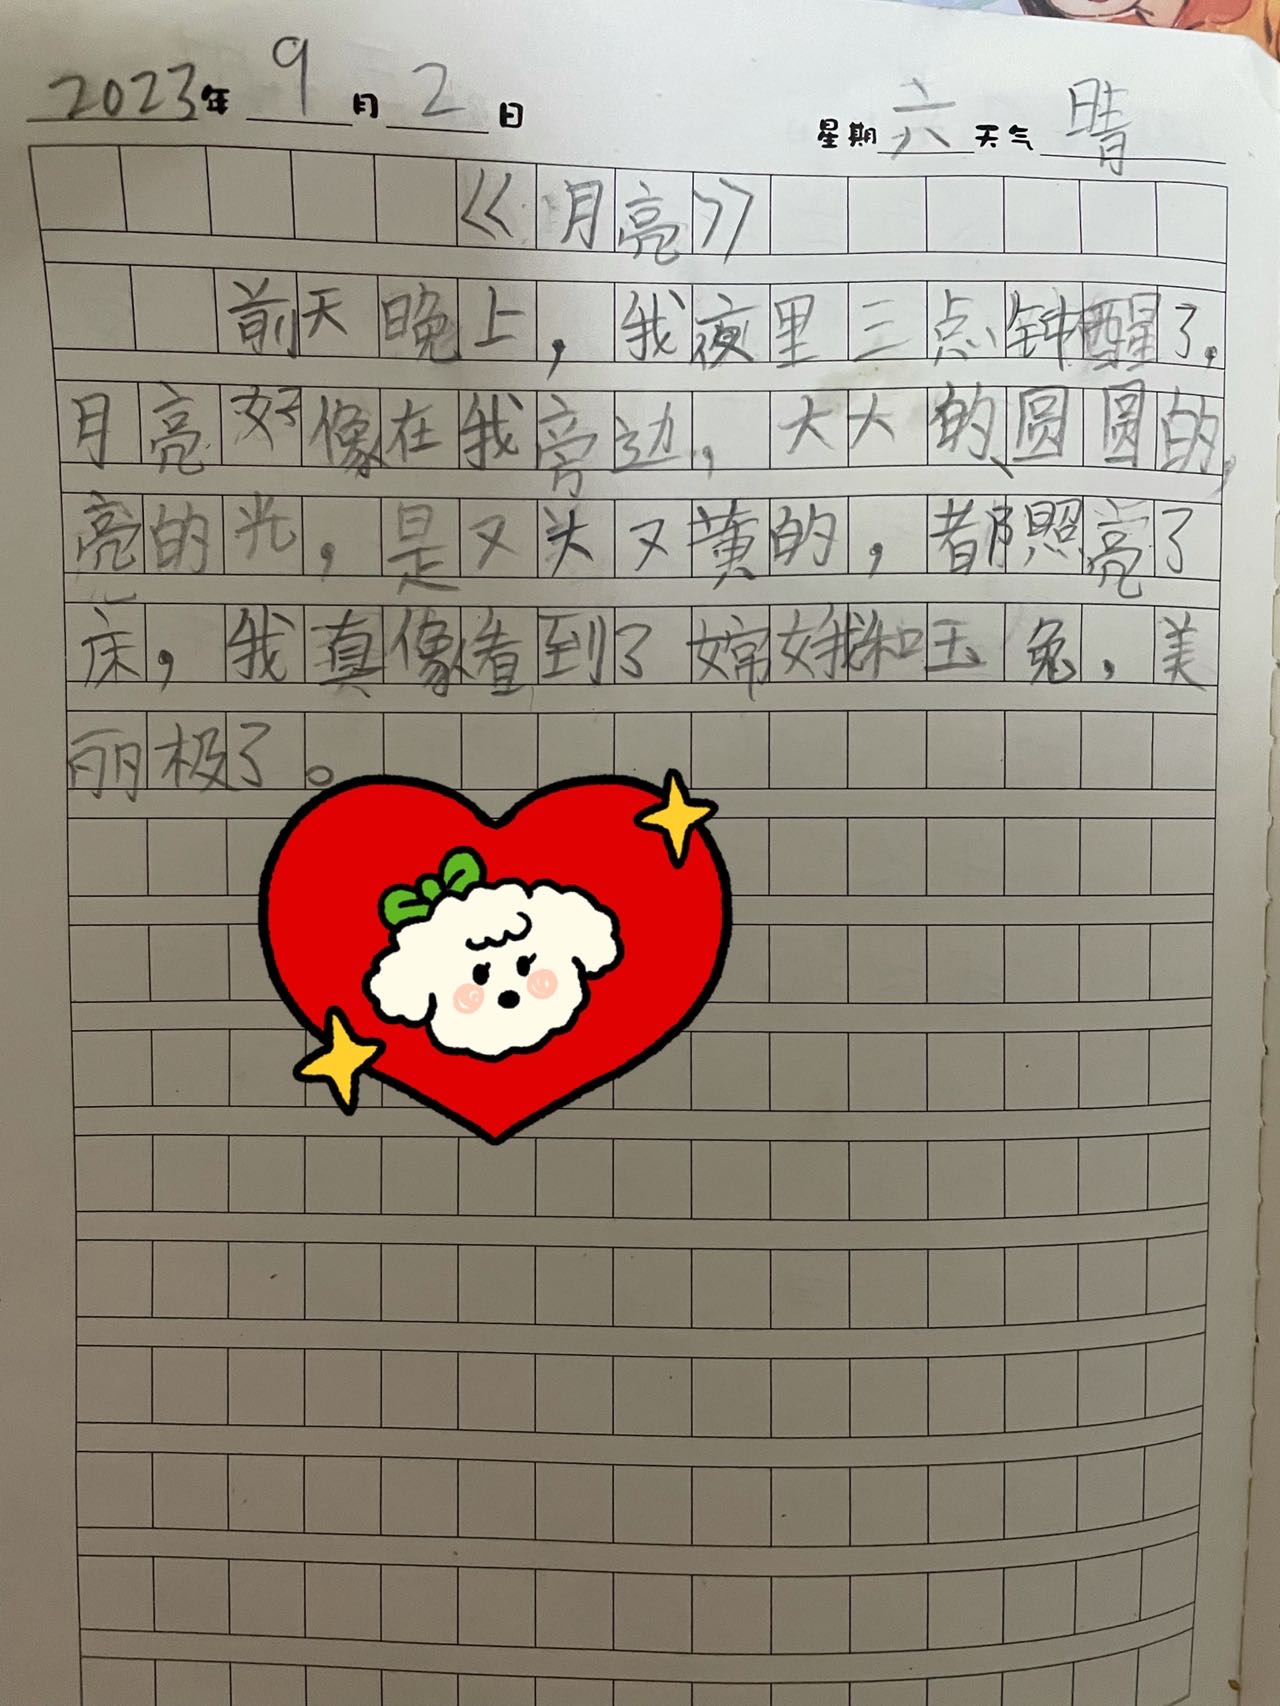 2023年 9月 2日 星期六 天气 晴
《月亮》
前天晚上，我夜里三点钟醒了，
月亮好像在我旁边，大大的、圆圆的，
亮的光，是又头又黄的，都照亮了
床，我真像看到了嫦娥和玉兔，美
丽极了。